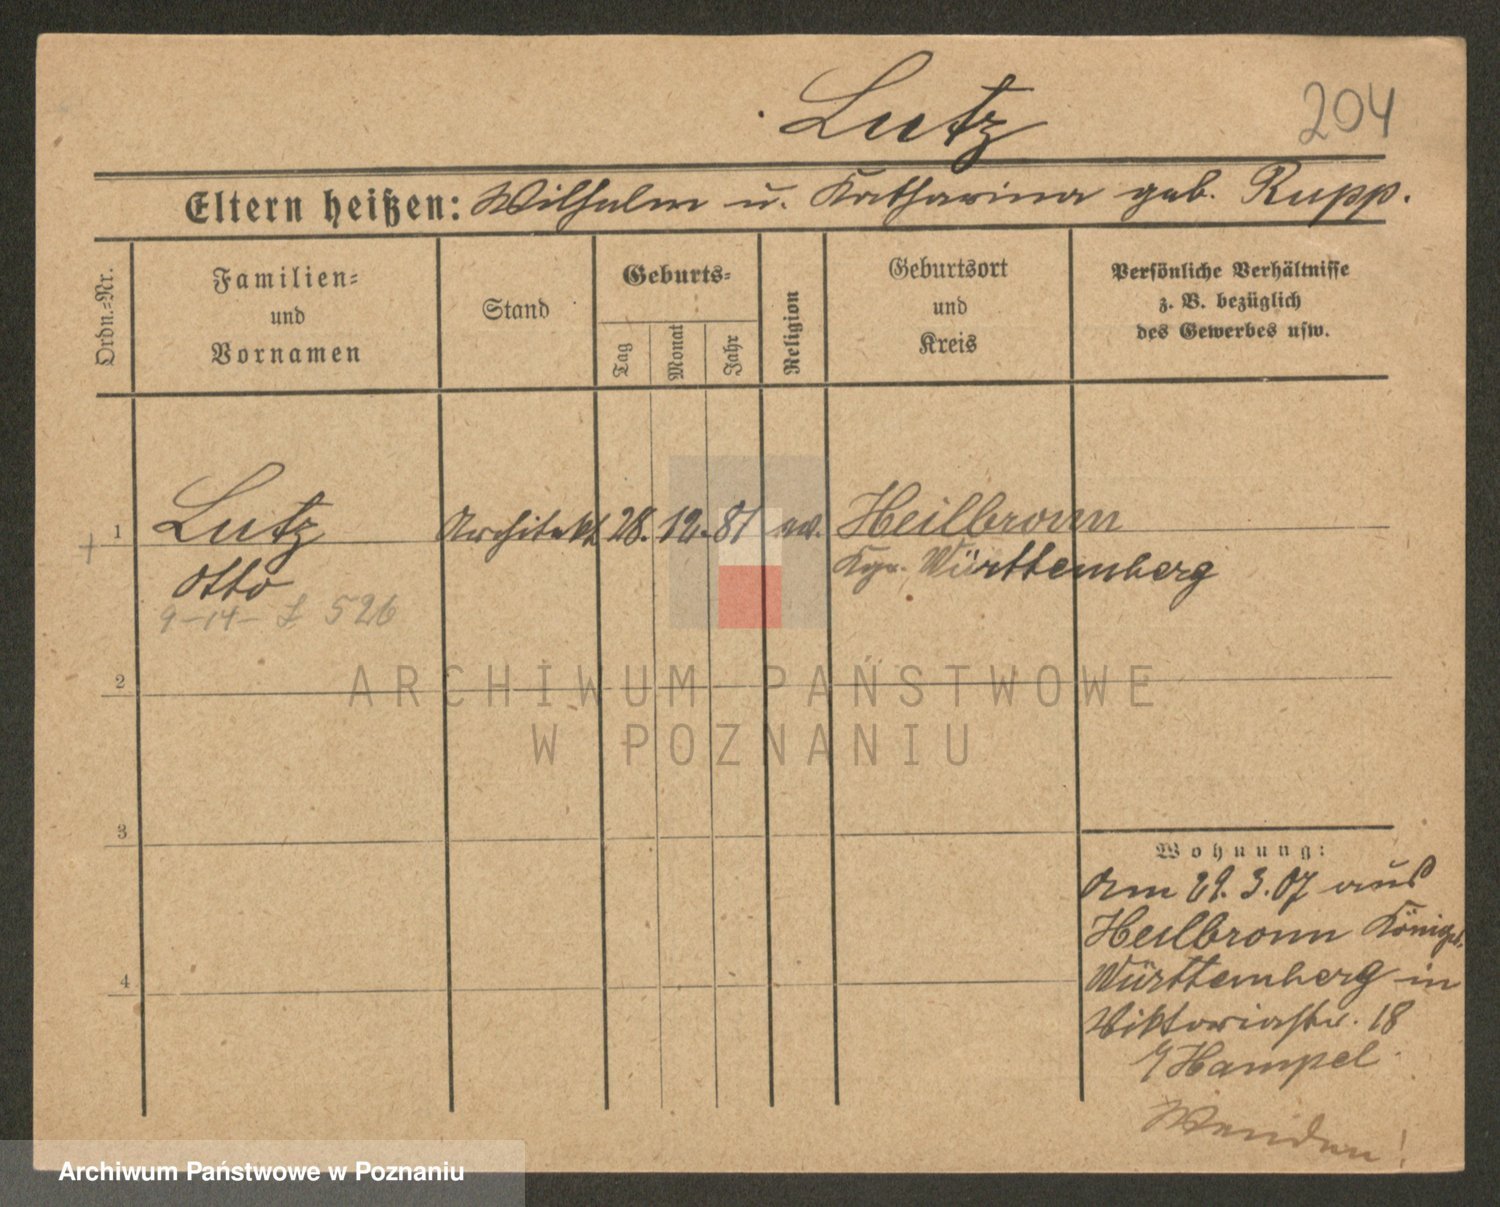 Lutz
204
Eltern heißen: Wilhelm u. Katharina geb. Rupp.
Ordn.-Nr.
Familien-
und
Vornamen
Stand
Geburts-
Tag
Monat
Jahr
Religion
Geburtsort
und
Kreis
Persönliche Verhältnisse
z. B. bezüglich
des Gewerbes usw.
1
Lutz
Otto
9-14- 526
Architekt
28. 12. 81
ev.
Heilbronn
Kgr. Württemberg
2
3
4
Wohnung:
Am 29. 3. 07 aus
Heilbronn
Württemberg in
Viktoriastr. 18
Hampel
Wenden!
ARCHIWUM PAŃSTWOWE
W POZNANIU
Archiwum Państwowe w Poznaniu